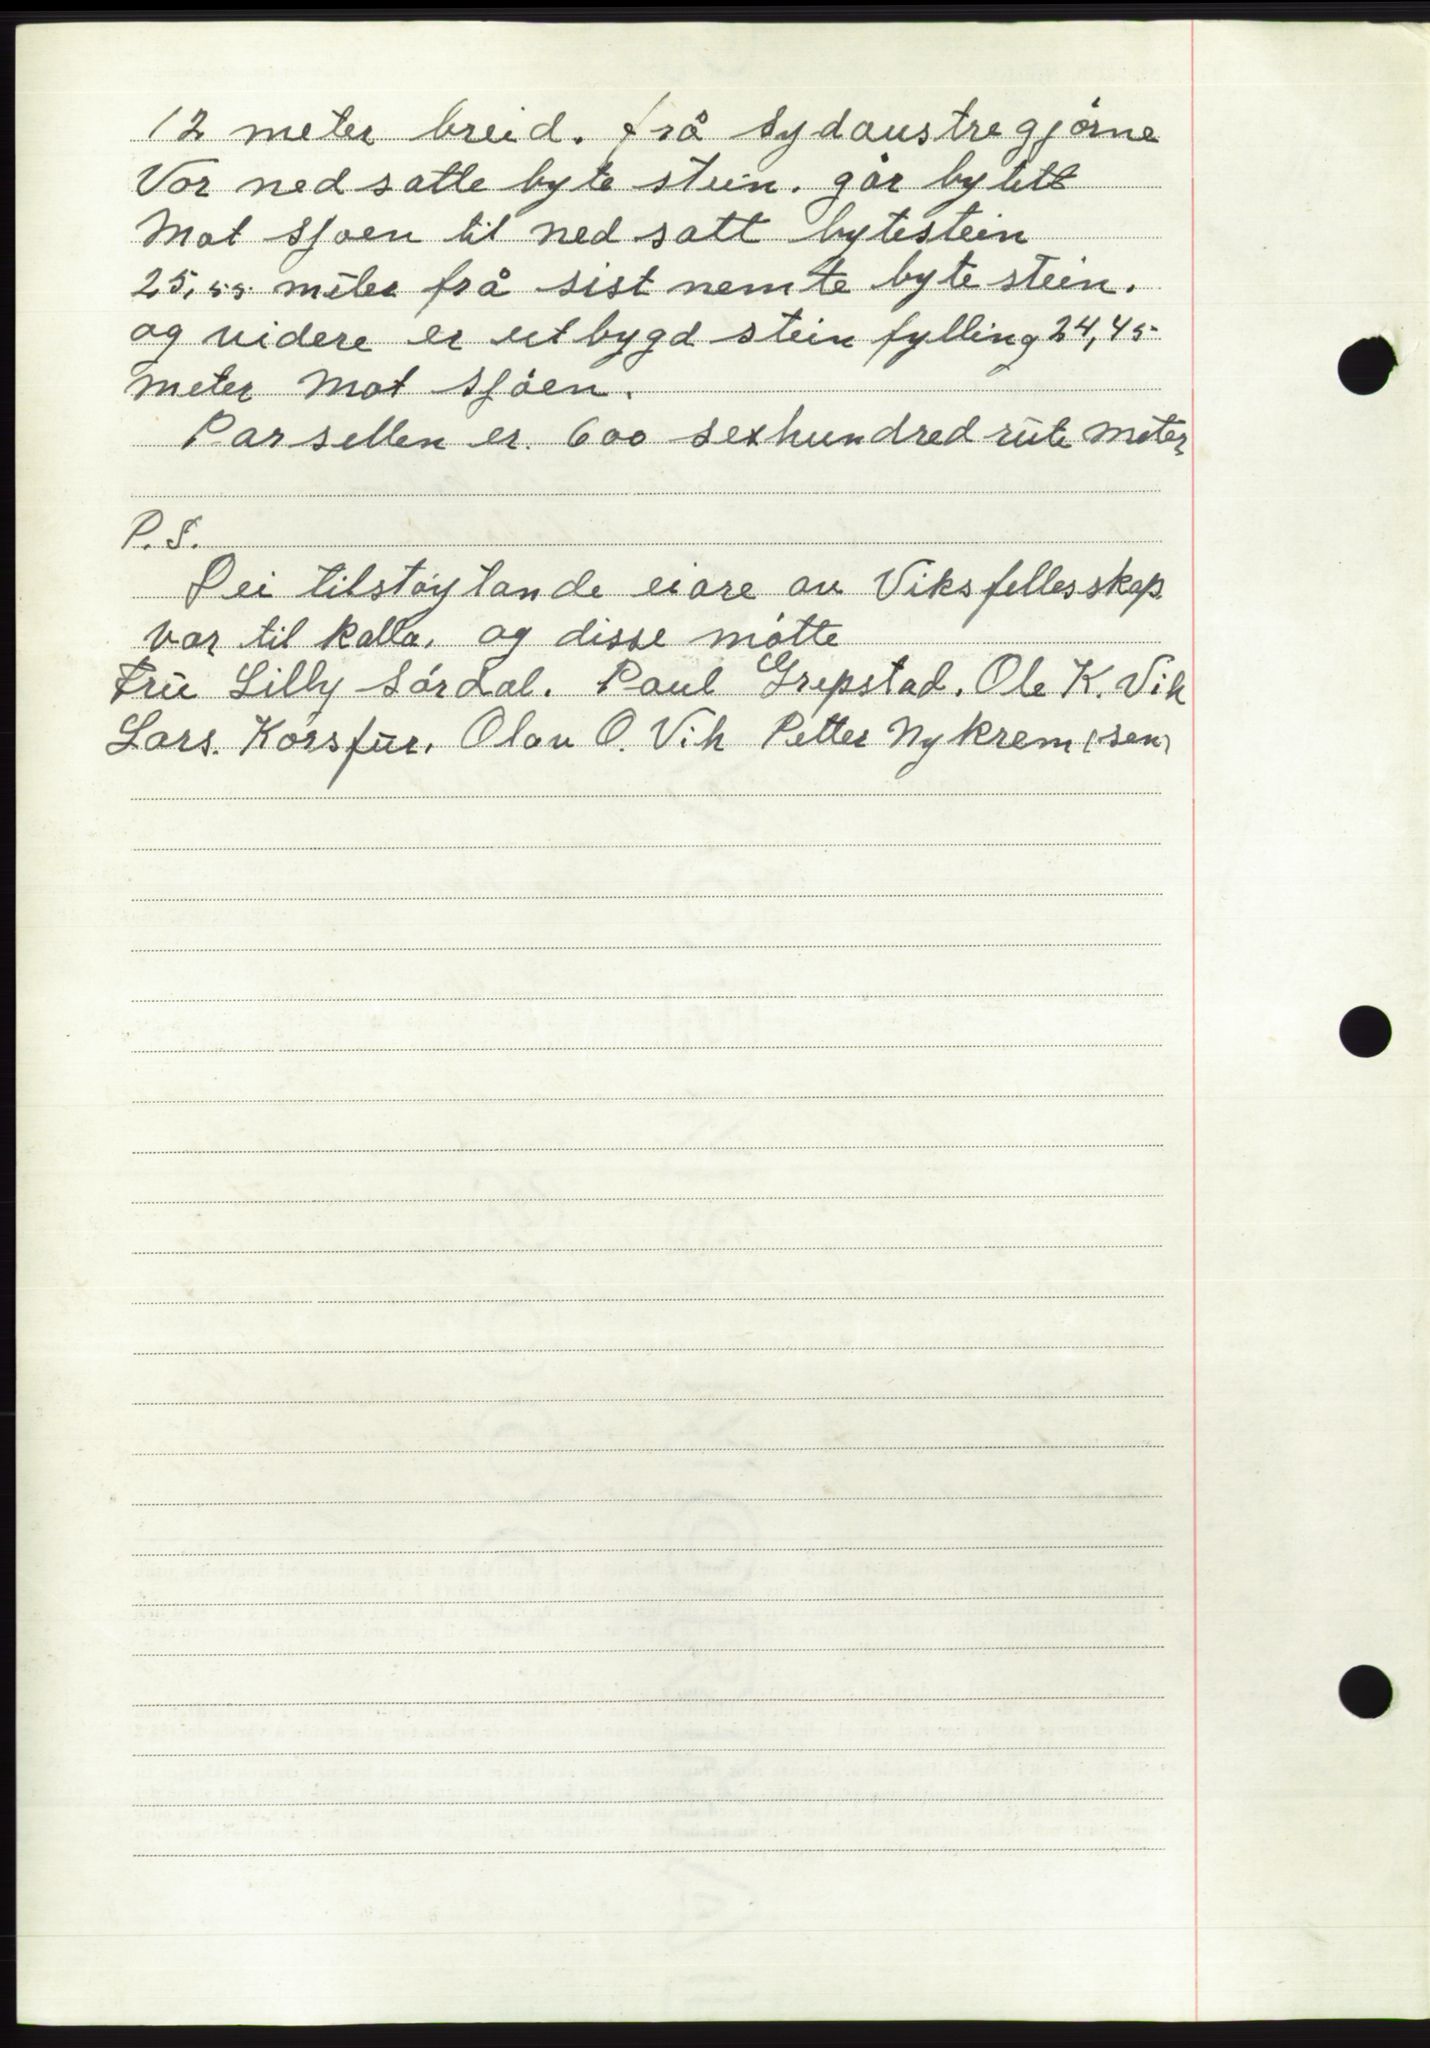 12 meter breid. frå sydaustre gjørne
Vor nedsatte byte stein. går bytett
Mot sjøen til ned satt bytestein
25,55 meter frå sist nemte byte stein.
og videre er utbygd stein fylling 24,45
meter Mot sjøen.
Parsellen er. 600 sexhundred rute meter
P.S.
Dei tilstøytande eiare av Viksfellesskap
var til kalla. og disse møtte
Fru Lilly Sørdal. Paul Grepstad. Ole K. Vik
Lars. Korsfur. Olav O. Vik Petter Nykrem (sen)